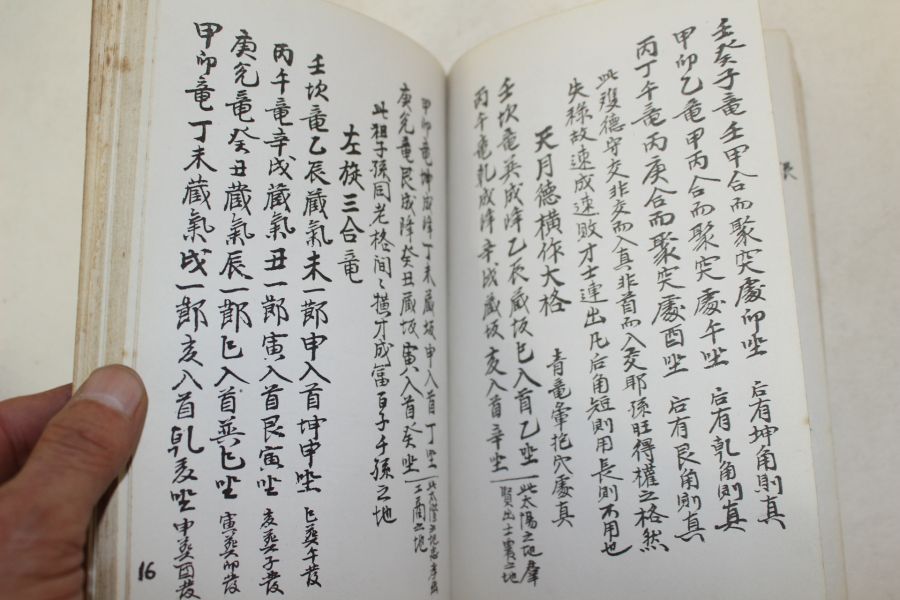 壬癸子竜壬甲合而聚突處卯坐 后有坤角則真
甲卯乙竜甲丙合而聚突處午坐 后有乾角則真
丙丁午竜丙庚合而聚突處酉坐 后有艮角則真
此 德守交非交而入真非首而入交耶孫旺得權之格然
失祿故速成速敗才士連出凡后角短則用長則不用也
天月德橫作大格 青竜 抱穴處真
壬坎竜巽成峰乙辰蔵坂巳入首乙坐 此太陽之地 賢出士 之地
丙午竜乾成峰辛戌蔵坂亥入首辛坐
甲卯竜坤成峰丁未蔵坂申入首丁坐 此太陰之地 工商之地
庚兌竜艮成峰癸丑蔵坂寅入首癸坐
此祖子孫同老格間々橫才成富百子千孫之地
左旋三合竜
壬坎竜乙辰蔵氣未一節申入首坤申坐 巳葬午發
丙午竜辛戌蔵氣丑一節寅入首艮寅坐 亥葬子發
庚兌竜癸丑蔵氣辰一節巳入首巽巳坐 寅葬卯發
甲卯竜丁未蔵氣戌一節亥入首乾亥坐 申葬酉發
16